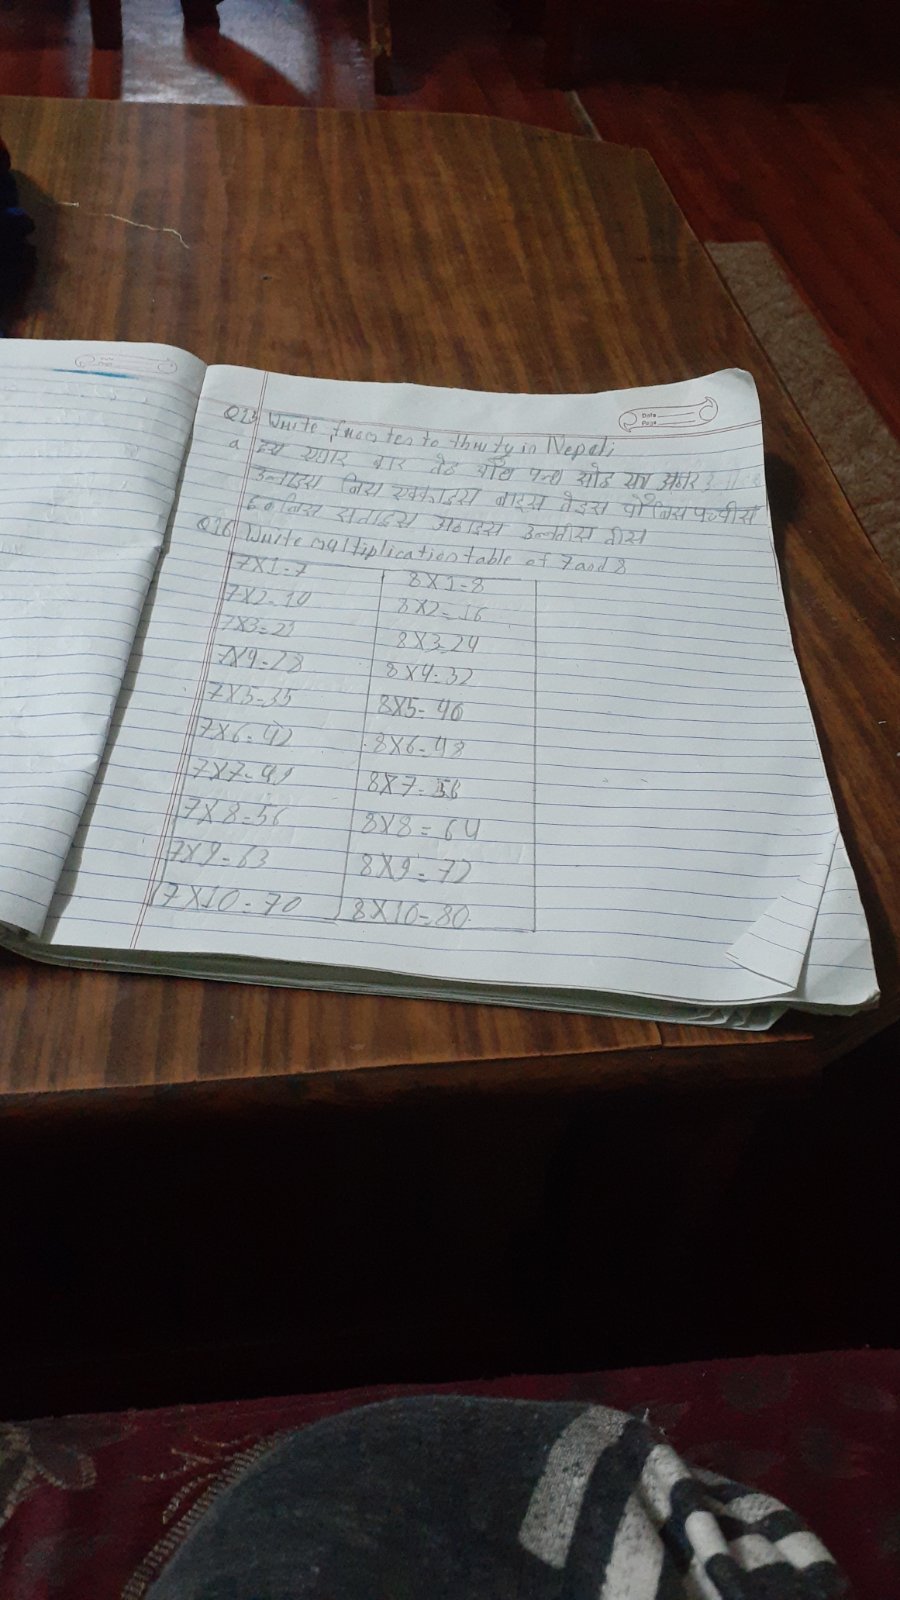 Date
Page
Write from tes to thirty in Nepali
a दश एघार बार तेह चौध पन्ध्र सोह सत्र अठार
उनाइस बिस एक्काइस बाइस तेइस चौबिस पच्चीस
छब्बिस सताइस अठाइस उन्तीस तीस
Q16 Write multiplication table of 7 and 8
7X1=7 8X1=8
7X2=14 8X2=16
7X3=21 8X3=24
7X4=28 8X4=32
7X5=35 8X5=40
7X6=42 8X6=48
7X7=49 8X7=56
7X8=56 8X8=64
7X9=63 8X9=72
7X10=70 8X10=80